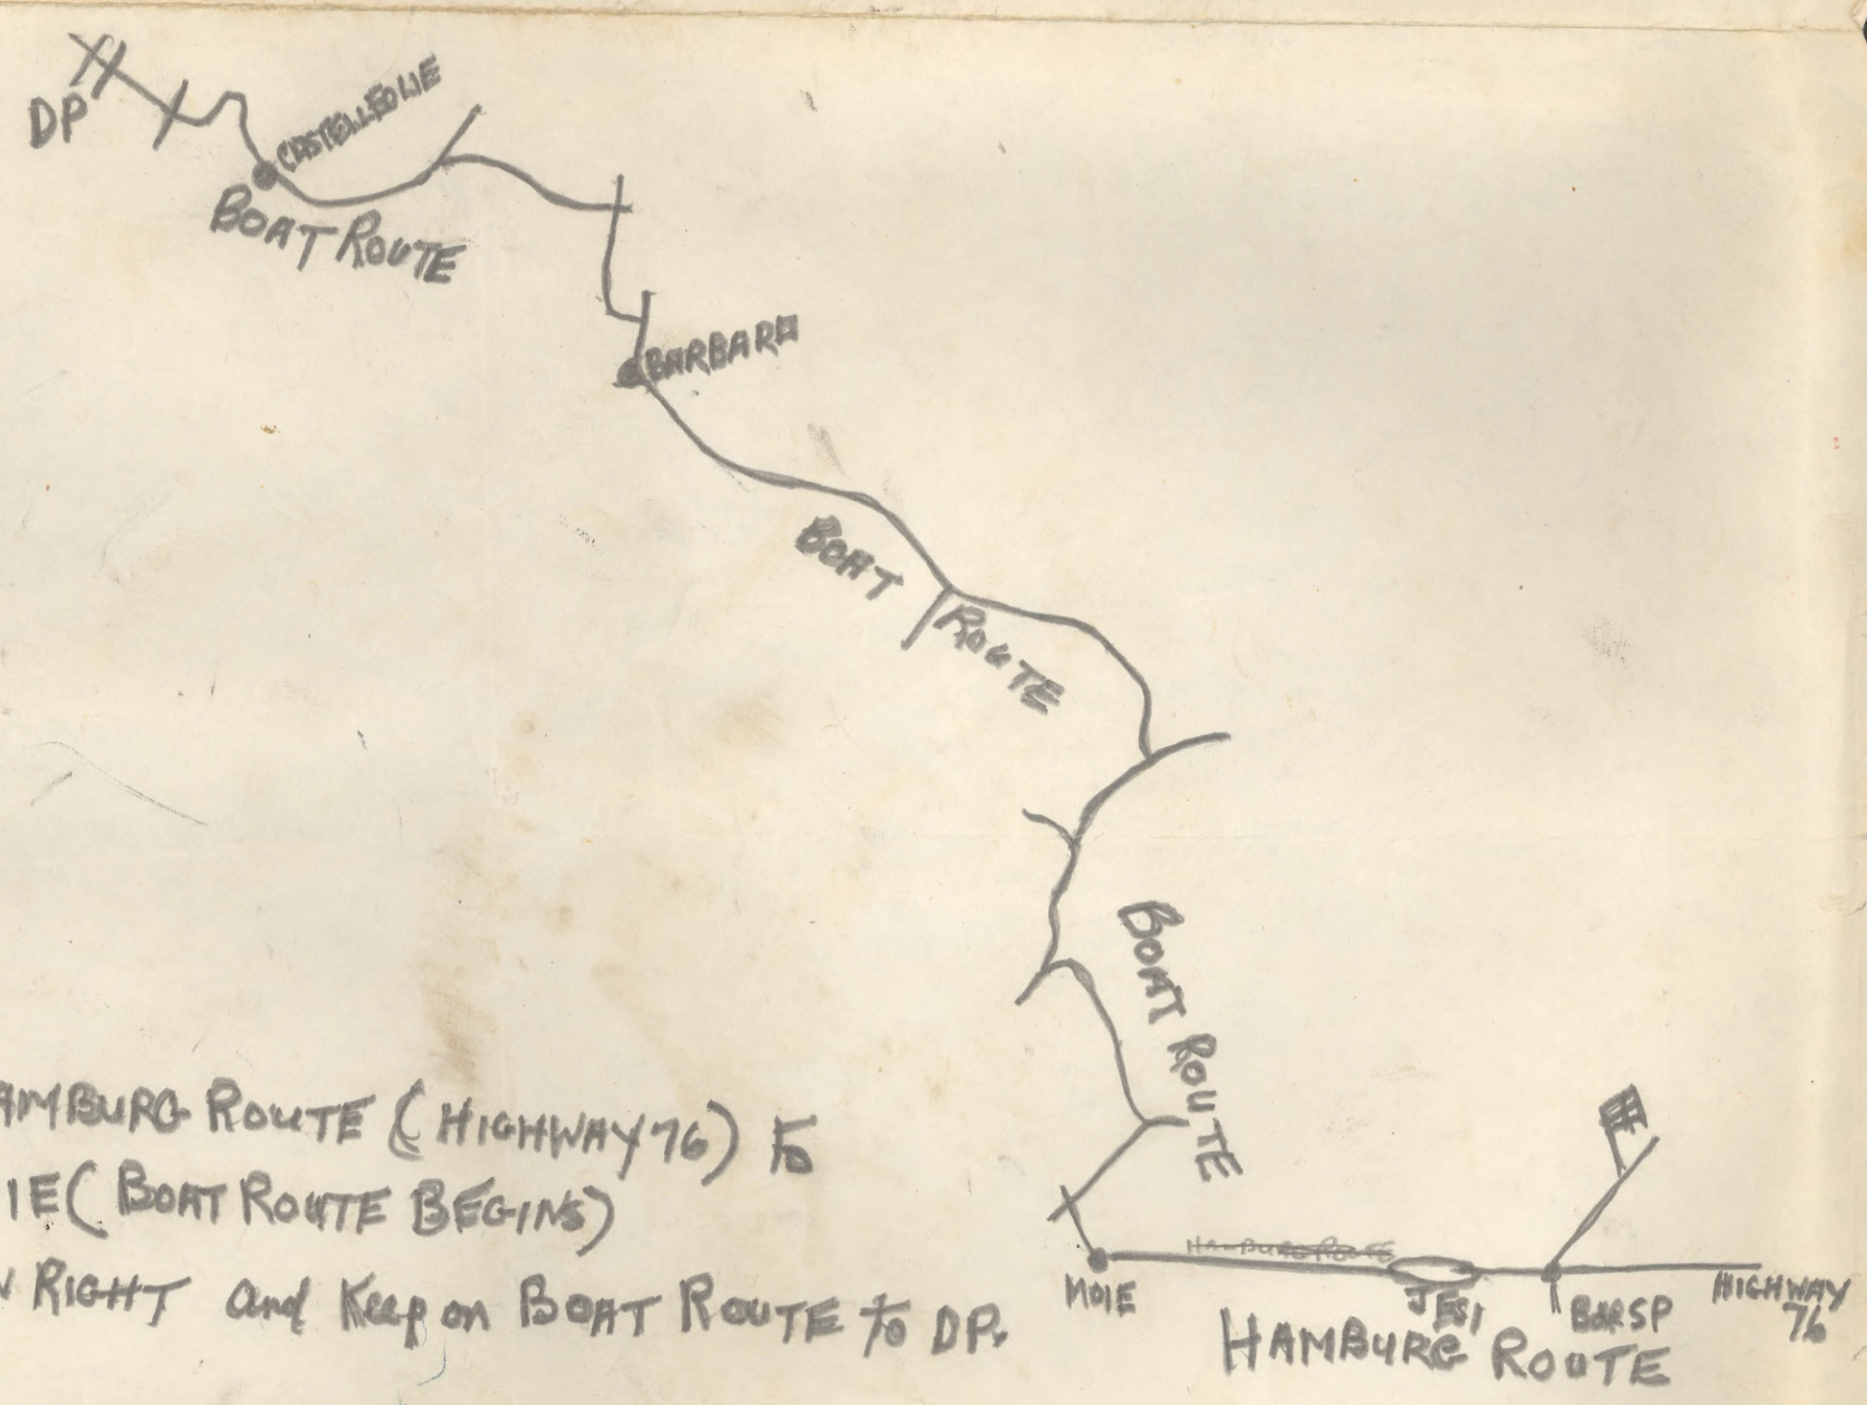 DP
CASTELLEONE
BOAT ROUTE
BARBARA
BOAT ROUTE
BOAT ROUTE
AMBURG ROUTE (HIGHWAY 76) to
IE (BOAT ROUTE BEGINS)
RIGHT and Keep on BOAT ROUTE to DP.
HAMBURG ROUTE
MOIE
JESI
BORSP
HIGHWAY
76
HAMBURG ROUTE